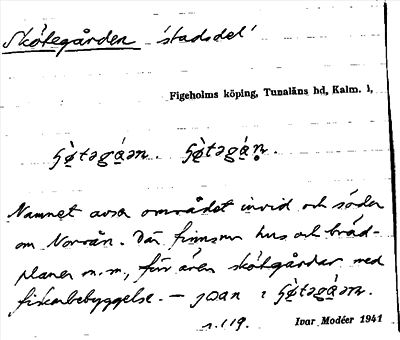 Skötegården 'stadsdel'
Figeholms köping, Tunaläns hd, Kalm. l,
Namnet avser området invid och söder
om Norrån. Där finnes hus och bräd-
planer m.m., för även skötgårdar med
fiskarbebyggelse. —
s. 119. Ivar Modéer 1941